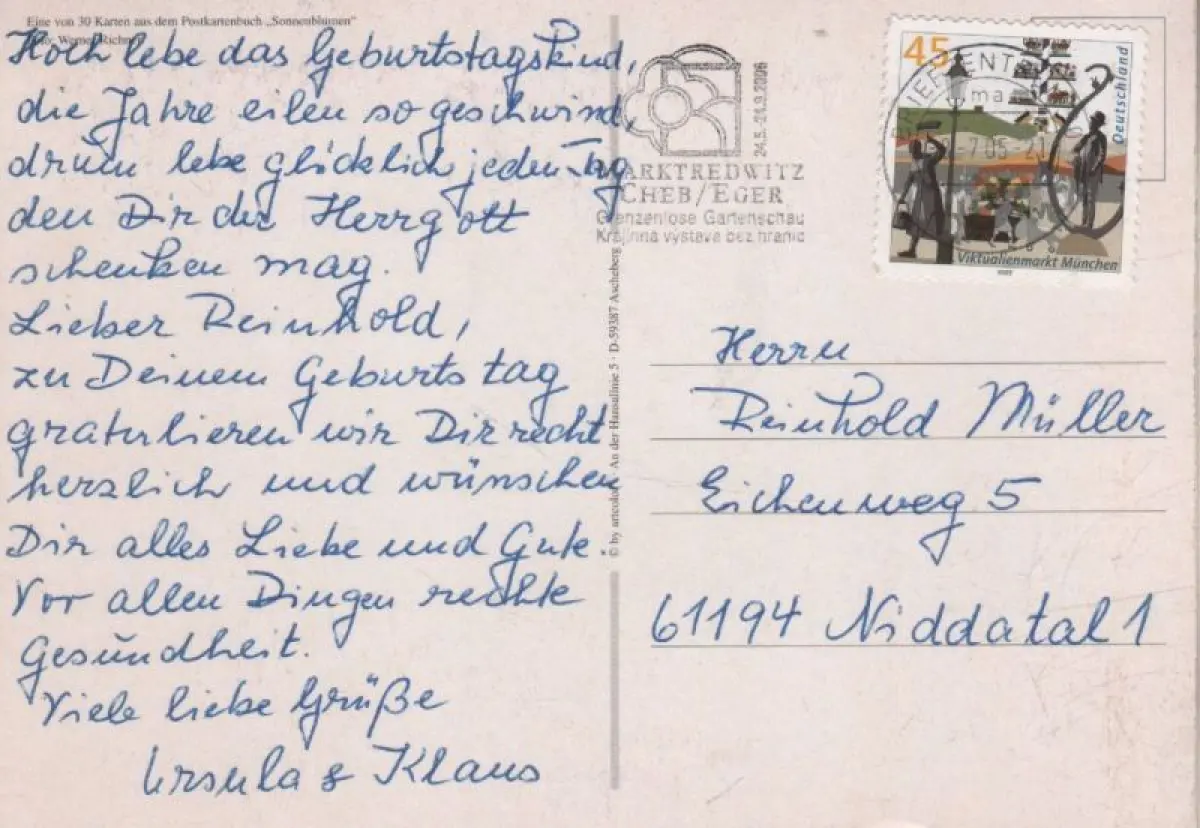 Eine von 30 Karten aus dem Postkartenbuch „Sonnenblumen"
Werner Richner
Hoch lebe das Geburtstagskind,
die Jahre eilen so geschwind,
drum lebe glücklich jeden Tag
den Dir der Herrgott
schenken mag.
Lieber Reinhold,
zu Deinem Geburtstag
gratulieren wir Dir recht
herzlich und wünschen
Dir alles Liebe und Gute.
Vor allen Dingen rechte
Gesundheit.
Viele liebe Grüße
Ursula & Klaus
© by artcolor · An der Hansalinie 5 · D-59387 Ascheberg
24.5.-24.9.2006
MARKTREDWITZ
CHEB/EGER
Grenzenlose Gartenschau
Krajinná výstava bez hranic
BRIEFZENTRUM
ma
-7.05-21
45
Deutschland
Viktualienmarkt München
Herrn
Reinhold Müller
Eichenweg 5
61194 Niddatal 1